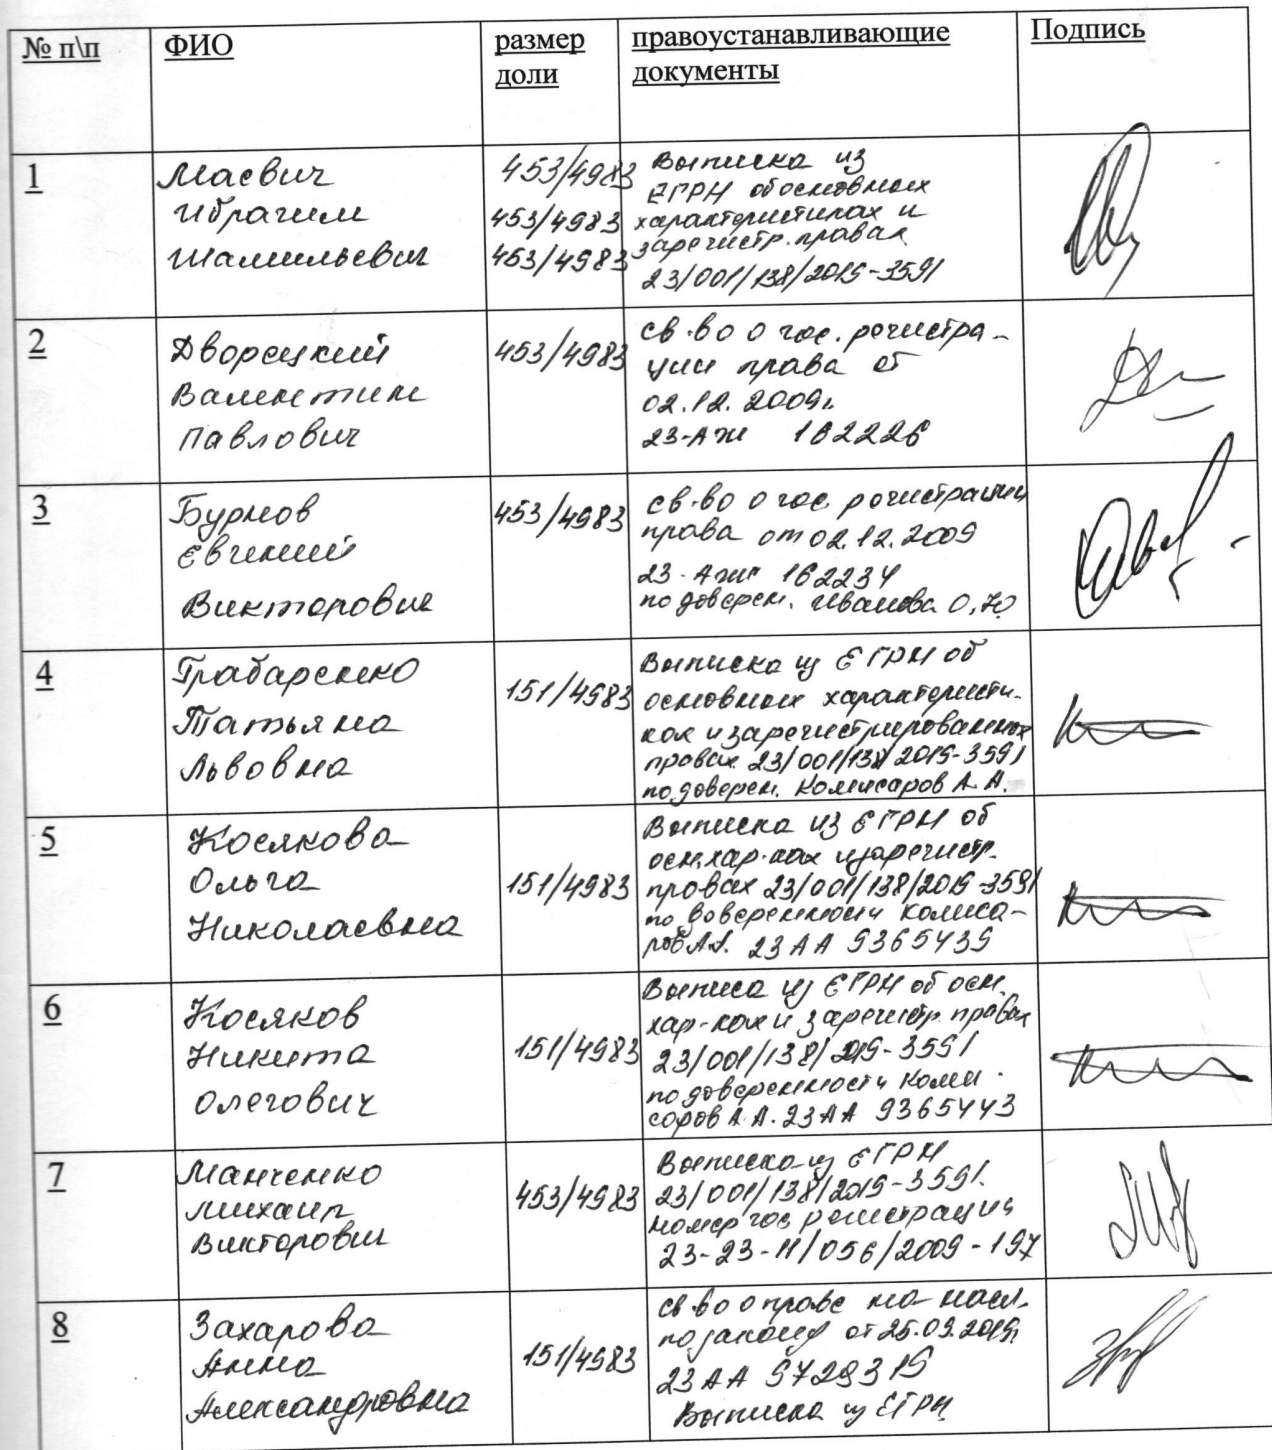 № п\п ФИО размер доли правоустанавливающие документы Подпись
1
Маевич
Ибрагим
Шамильевич
453/4983
453/4983
453/4983
Выписка из
ЕГРН об основных
характеристиках и
зарегистр. правах
23/001/138/2019-3591
2
Дворецкий
Валентин
Павлович
453/4983
св-во о гос. регистра-
ции права от
02.12.2009г.
23-АЖ 162226
3
Бурнов
Евгений
Викторович
453/4983
св-во о гос. регистрации
права от 02.12.2009
23-АЖ 162234
по доверен. Иванова О.Ю
4
Грабаренко
Татьяна
Львовна
151/4983
Выписка из ЕГРН об
основных характеристи-
ках и зарегистрированных
правах 23/001/138/2019-3591
по доверен. Комисаров А.А.
5
Косякова
Ольга
Николаевна
151/4983
Выписка из ЕГРН об
осн.хар-ках и зарегистр.
правах 23/001/138/2019-3591
по доверенности Комиса-
ров А.А. 23АА 9365439
6
Косяков
Никита
Олегович
151/4983
Выписа из ЕГРН об осн.
хар-ках и зарегистр. правах
23/001/138/2019-3591
по доверенности Коми-
саров А.А. 23АА 9365443
7
Манченко
Михаил
Викторович
453/4983
Выписка из ЕГРН
23/001/138/2019-3591.
номер гос регистрации
23-23-11/056/2009-197
8
Захарова
Анна
Александровна
151/4983
св-во о праве на насл.
по закону от 25.09.2019г.
23АА 9729319
Выписка из ЕГРН